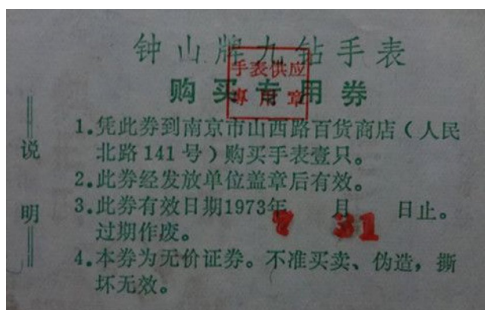 钟山牌九钻手表
手表供应
專用章
购买专用券
说明
1.凭此券到南京市山西路百货商店（人民
北路141号）购买手表壹只。
2.此券经发放单位盖章后有效。
3.此券有效日期1973年7月31日止。
过期作废。
4.本券为无价证券。不准买卖、伪造，撕
坏无效。